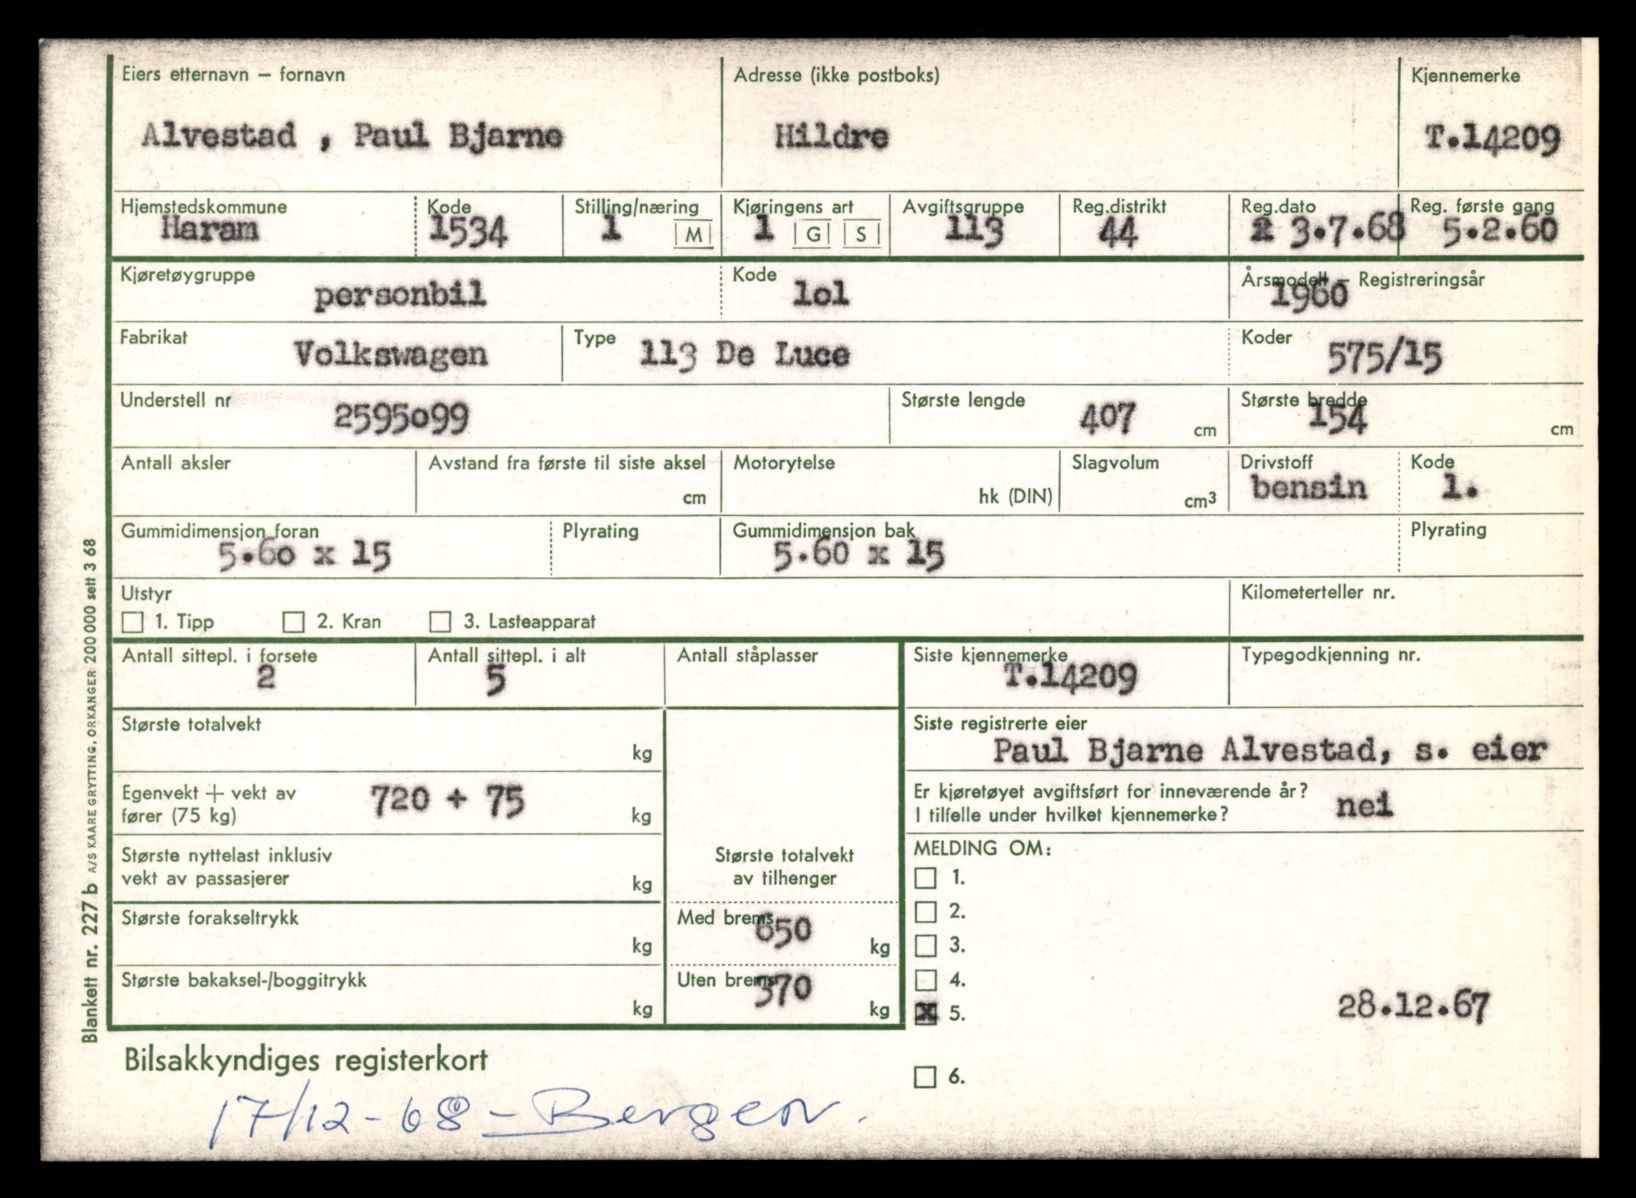 Eiers etternavn – fornavn Adresse (ikke postboks) Kjennemerke
Alvestad , Paul Bjarne Hildre T.14209
Hjemstedskommune Kode Stilling/næring Kjøringens art Avgiftsgruppe Reg.distrikt Reg.dato Reg. første gang
Haram 1534 1 M 1 G S 113 44 3.7.68 5.2.60
Kjøretøygruppe Kode Årsmodell – Registreringsår
personbil lol 1960
Fabrikat Type Koder
Volkswagen 113 De Luce 575/15
Understell nr Største lengde Største bredde
2595o99 407 cm 154 cm
Antall aksler Avstand fra første til siste aksel Motorytelse Slagvolum Drivstoff Kode
cm hk (DIN) cm3 bensin 1.
Gummidimensjon foran Plyrating Gummidimensjon bak Plyrating
5.60 x 15 5.60 x 15
Utstyr Kilometerteller nr.
1. Tipp 2. Kran 3. Lasteapparat
Antall sittepl. i forsete Antall sittepl. i alt Antall ståplasser Siste kjennemerke Typegodkjenning nr.
2 5 T.14209
Største totalvekt kg
Siste registrerte eier
Paul Bjarne Alvestad, s. eier
Egenvekt + vekt av
fører (75 kg) 720 + 75 kg
Er kjøretøyet avgiftsført for inneværende år?
I tilfelle under hvilket kjennemerke? nei
Største nyttelast inklusiv
vekt av passasjerer kg
Største totalvekt
av tilhenger
MELDING OM:
1.
2.
3.
4.
X 5. 28.12.67
6.
Største forakseltrykk kg
Med brems 650 kg
Største bakaksel-/boggitrykk kg
Uten brems 370 kg
Bilsakkyndiges registerkort
17/12-68 – Bergen.
Blankett nr. 227 b A/S KAARE GRYTTING, ORKANGER 200 000 sett 3 68